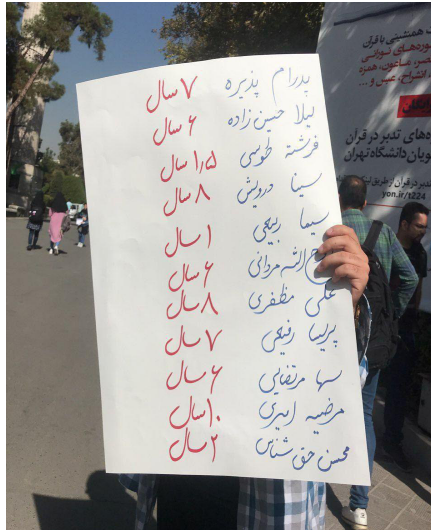 پدرام پذیره ۷ سال
لیلا حسین زاده ۶ سال
فرشته طوسی ۱٫۵ سال
سینا درویش ۸ سال
سیما ربیعی ۱ سال
اله مردانی ۶ سال
علی مظفری ۸ سال
پریسا رفیعی ۷ سال
سها مرتضایی ۶ سال
مرضیه امیری ۱۰ سال
محسن حق شناس ۲ سال
همنشینی با قرآن
سوره‌های نورانی
عصر، ماعون، همزه
انشراح، عبس و ...
های تدبر در قرآن
دانشگاه تهران
yon.ir/t224